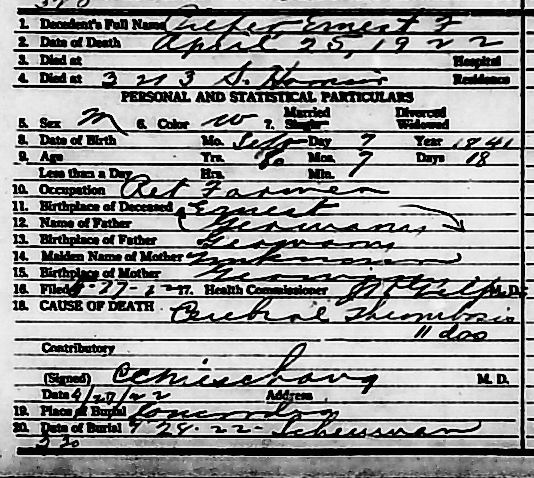 1. Decedent's Full Name Ernest F
2. Date of Death April 25, 1922
3. Died at Hospital
4. Died at 3213 S. Residence
PERSONAL AND STATISTICAL PARTICULARS
Married Divorced
5. Sex M 6. Color W 7. Single Widowed
8. Date of Birth Mo. Sept Day 7 Year 1841
9. Age Yrs. 80 Mos. 7 Days 18
Less than a Day Hrs. Min.
10. Occupation Ret Farmer
11. Birthplace of Deceased Ernest
12. Name of Father Germany
13. Birthplace of Father Germany
14. Maiden Name of Mother Unknown
15. Birthplace of Mother Germany
16. Filed 4-27-22 17. Health Commissioner M. D.
18. CAUSE OF DEATH Cerebral Thrombosis
11 das
Contributory
(Signed) M. D.
Date 4/27/22 Address
19. Place of Burial Concordia
20. Date of Burial 4/28-22-